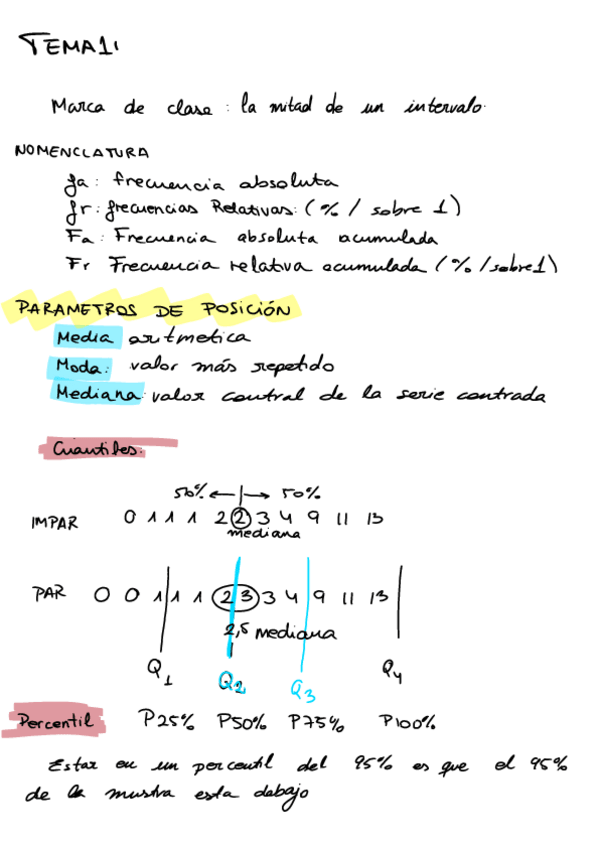 TEMA 1:
Marca de clase : la mitad de un intervalo.
NOMENCLATURA
fa : frecuencia absoluta
fr : frecuencias Relativas: (% / sobre 1)
Fa : Frecuencia absoluta acumulada
Fr Frecuencia relativa acumulada (% / sobre 1)
PARAMETROS DE POSICIÓN
Media aritmetica
Moda: valor más repetido
Mediana: valor central de la serie centrada
Cuantiles:
50% ← | → 50%
IMPAR 0 1 1 1 2 2 3 4 9 11 13
mediana
PAR 0 0 1 1 1 2 3 3 4 9 11 13
2,5 mediana
Q1 Q2 Q3 Q4
Percentil P25% P50% P75% P100%
Estar en un percentil del 95% es que el 95%
de la mustra esta debajo